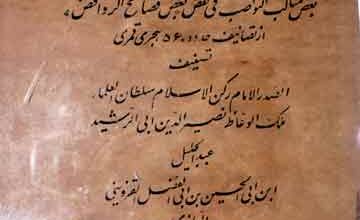 بعض مثالب النواصب فی نقض بعض فضائح الروافض»
از تصانیف حدود ۵۶۰ هجری قمری
تصنیف
الصدر الامام رکن الاسلام سلطان العلماء
ملک الوعاظ نصیر الدین ابی الرشید
عبد الجلیل
ابن ابی الحسین بن ابی الفضل القزوینی
الرازی